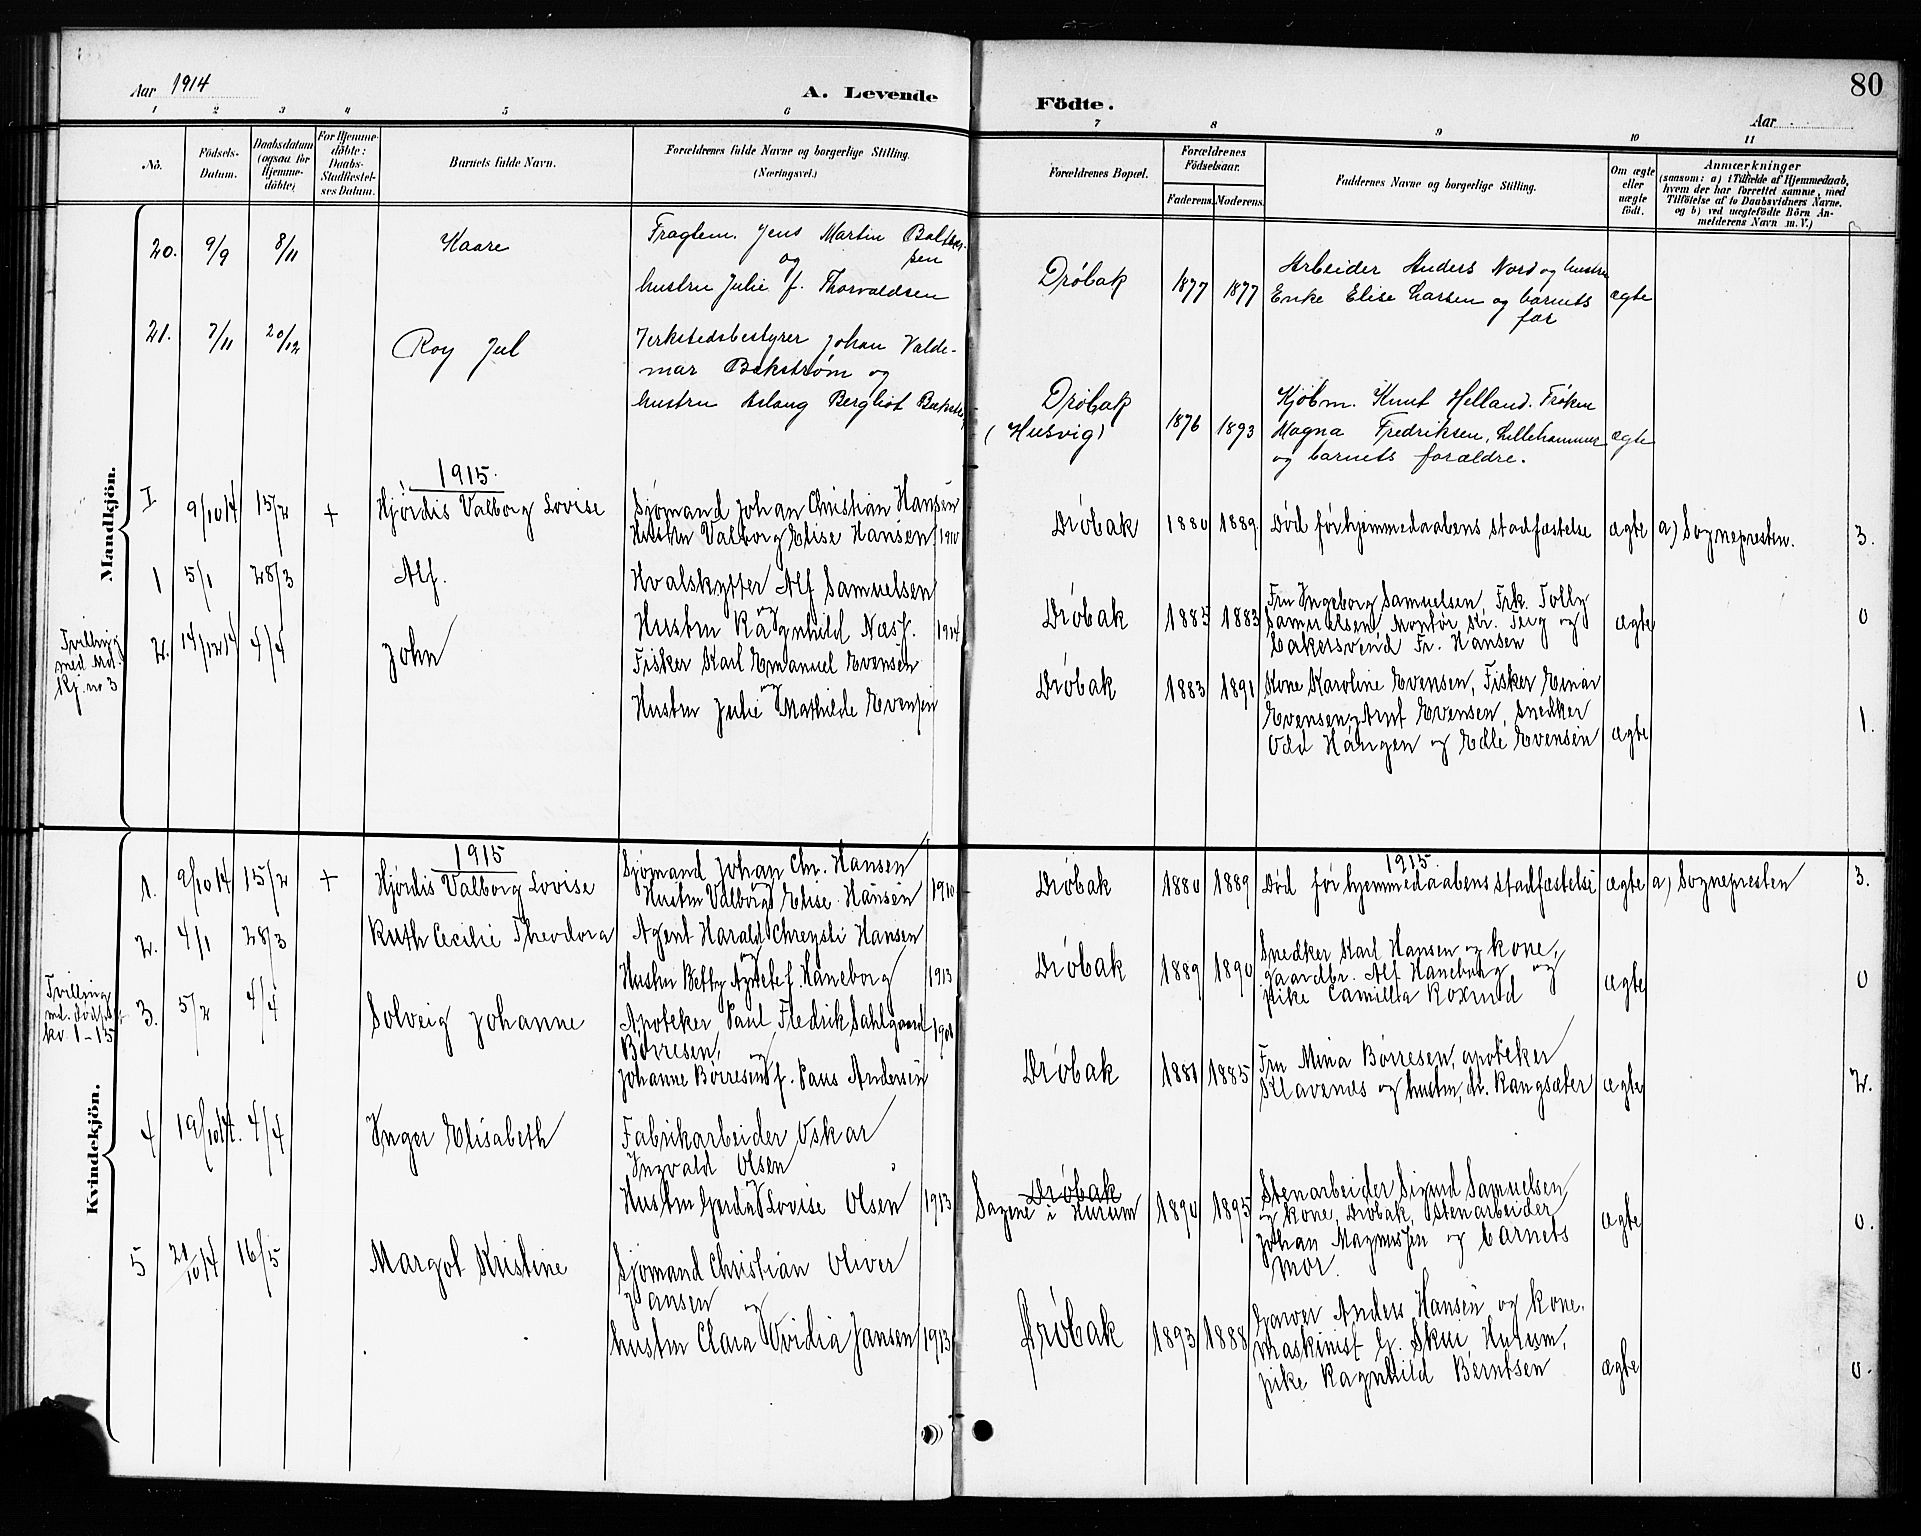 80
Aar 1914
A. Levende Födte.
Aar
1 2 3 4 5 6 7 8 9 10 11
No.
Födsels-
Datum.
Daabsdatum
(ogsaa for
Hjemme-
döbte)
For Hjemme-
döbte:
Daabs-
Stadfæstel-
ses Datum.
Barnets fulde Navn.
Forældrenes fulde Navne og borgerlige Stilling.
(Næringsvei.)
Forældrenes Bopæl.
Forældrenes
Födselsaar.
Faderens. Moderens.
Faddernes Navne og borgerlige Stilling.
Om ægte
eller
uægte
födt.
Anmærkninger
(saasom: a) i Tilfælde af Hjemmedaab,
hvem der har forrettet samme, med
Tilföielse af to Daabsvidners Navne.
og b) ved uægtefödte Börn An-
melderens Navn m. V.)
Mandkjön.
20. 9/9 8/11 Kaare
Fragtem. Jens Martin Balthes-
og sen
hustru Julie f. Thorvaldsen
Drøbak 1877 1877
Arbeider Anders Nord og hustru
Enke Elise Larsen og barnets
far
ægte
21. 7/11 20/12 Roy Jul
Verkstedsbestyrer Johan Valde-
mar Bekstrøm og
hustru Aslaug Bergliot
Drøbak
(Husvig)
1876 1893
Kjøbm. Knut Helland. Frøken
Magna Fredriksen, Lillehammer
og barnets forældre.
ægte
1915.
I 9/10 14 15/2 + Hjørdis Valborg Lovise
Sjømand Johan Christian Hansen
Hustru Valborg Elise Hansen 1910
Drøbak 1880 1889 Død før hjemmedaabens stadfæstelse ægte a) Sognepresten. 3.
1 5/1 28/3 Alf.
Hvalskytter Alf Samuelsen
og
Hustru Ragnhild Næss. 1914
Drøbak 1885 1883
Fru Ingeborg Samuelsen, Frk. Tolly
Samuelsen, Montør Kr. Teig og
bakersvend Fr. Hansen
ægte 0
Tvilling
med
kj. no 3
2. 14/12 14 4/4 John
Fisker Karl Emanuel Evensen
og
Hustru Julie Mathilde Evensen
Drøbak 1883 1891
Kone Karoline Evensen, Fisker Einar
Evensen, Arnt Evensen, snedker
Odd Haugen og Edle Evensen
ægte 1.
Kvindekjön.
1915 1915.
1. 9/10 14 15/2 + Hjørdis Valborg Lovise
Sjømand Johan Chr. Hansen
og
Hustru Valborg Elise Hansen 1910
Drøbak 1880 1889 Død før hjemmedaabens stadfæstelse ægte a) Sognepresten 3.
2. 4/1 28/3 Ruth Cecilie Theodora
Agent Harald Chrensti Hansen
og
Hustru Betty Agnete f. Haneborg 1913
Drøbak 1889 1890
Snedker Karl Hansen og kone,
gaardbr. Alf Haneborg og
pike Camilla Roxrud
ægte 0
Tvilling
kv. 1-15
3. 5/2 4/4 Solveig Johanne
Apoteker Paul Fredrik Dahlgaard
Børresen,
og
Johanne Børresen f. Paus Andersen
Drøbak 1885
Fru Mina Børresen, apoteker
Klavenes og hustru, dr. Rangsæter
ægte 2.
4 19/10 14. 4/4 Inger Elisabeth
Fabrikarbeider Oskar
Ingvald Olsen
og
Hustru Gerda Lovise Olsen 1913
Drøbak
Sagene i Hurum
1890 1895
Stenarbeider Sigurd Samuelsen
og kone, Drøbak, stenarbeider
Johan Magnussen og barnets
mor.
ægte 0.
5 20/10 14 16/5 Margot Kristine
Sjømand Christian Oliver
Jansen
og
hustru Clara Ovidia Jansen 1913
Drøbak 1893 1888
Garver Anders Hansen og kone,
maskinist G. Skui, Hurum,
pike Ragnhild Berntsen
ægte 0.